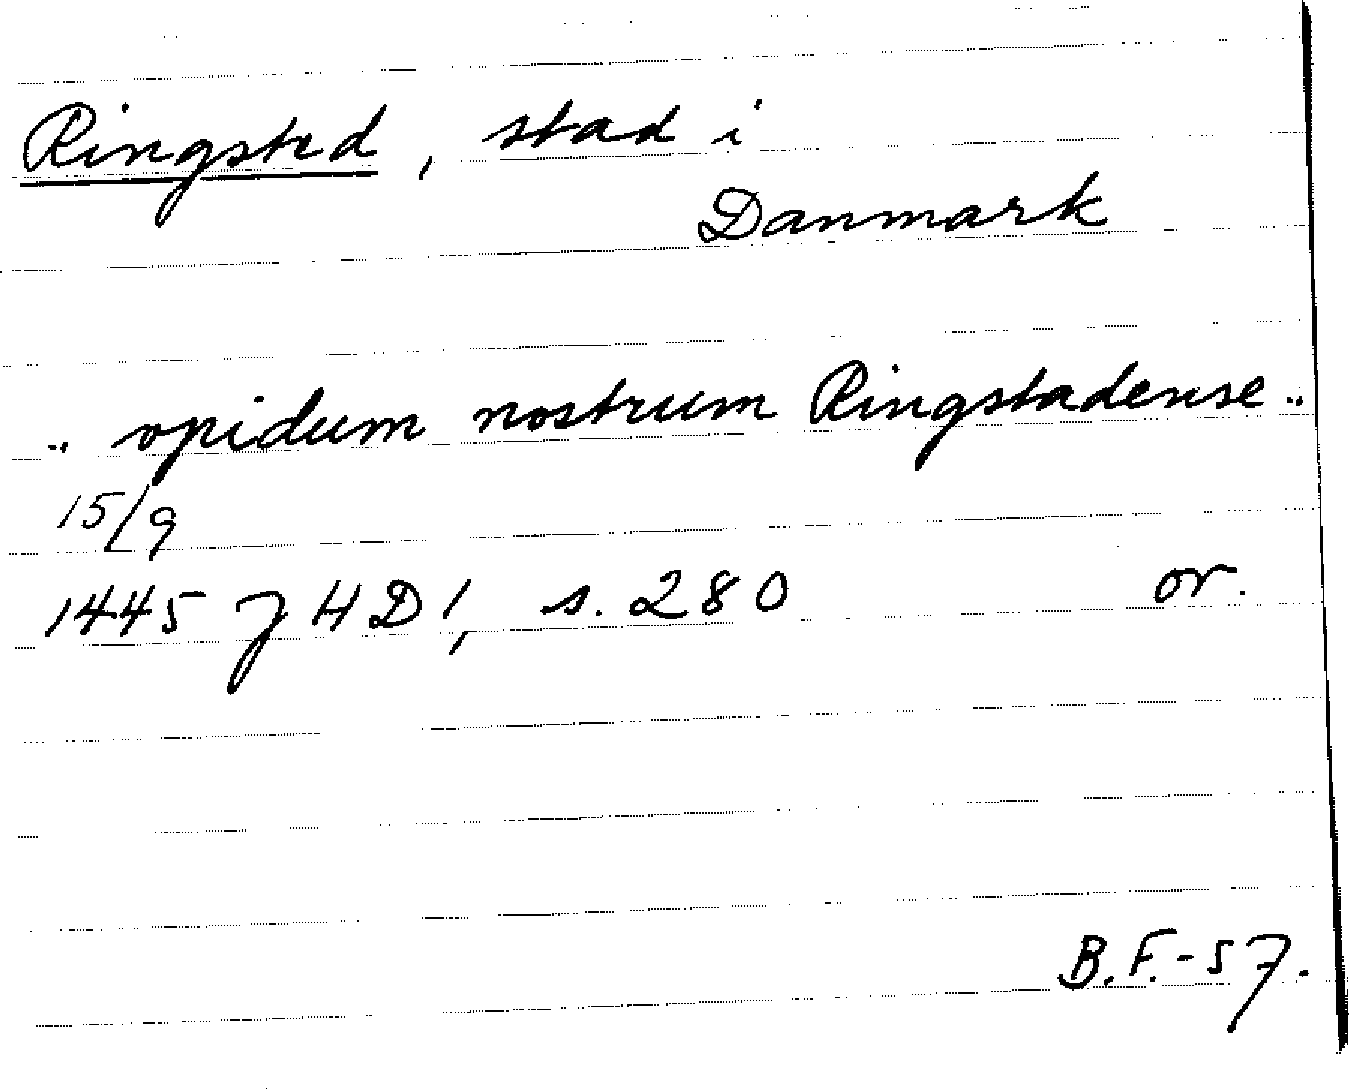 Ringsted, stad i
Danmark
.. opidum nostrum Ringstadense ..
15/9
1445 JHD 1, s. 280 or.
B.F.-57.